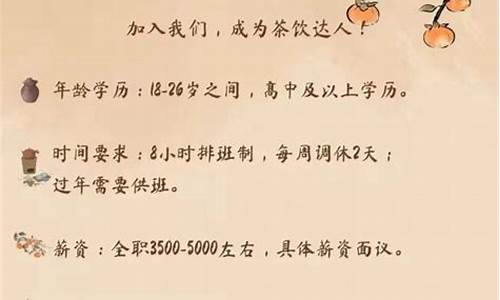 加入我们，成为茶饮达人！
年龄学历：18-26岁之间，高中及以上学历。
时间要求：8小时排班制，每周调休2天；
过年需要供班。
薪资：全职3500-5000左右，具体薪资面议。